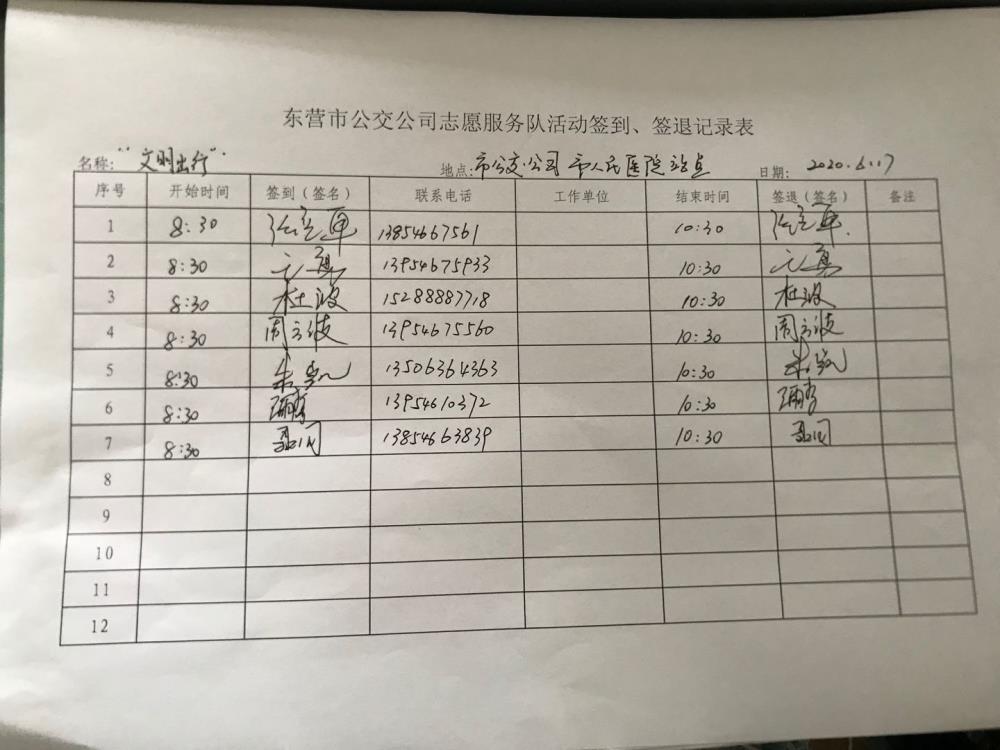 东营市公交公司志愿服务队活动签到、签退记录表
名称:“文明出行” 地点:市公交公司 市人民医院站点 日期: 2020.6.17
序号 开始时间 签到（签名） 联系电话 工作单位 结束时间 签退（签名） 备注
1 8:30 13854667561 10:30
2 8:30 13954675933 10:30
3 8:30 杜波 15288887718 10:30 杜波
4 8:30 周立波 13954675560 10:30 周立波
5 8:30 13506364363 10:30
6 8:30 13954610372 10:30
7 8:30 13854663839 10:30
8
9
10
11
12